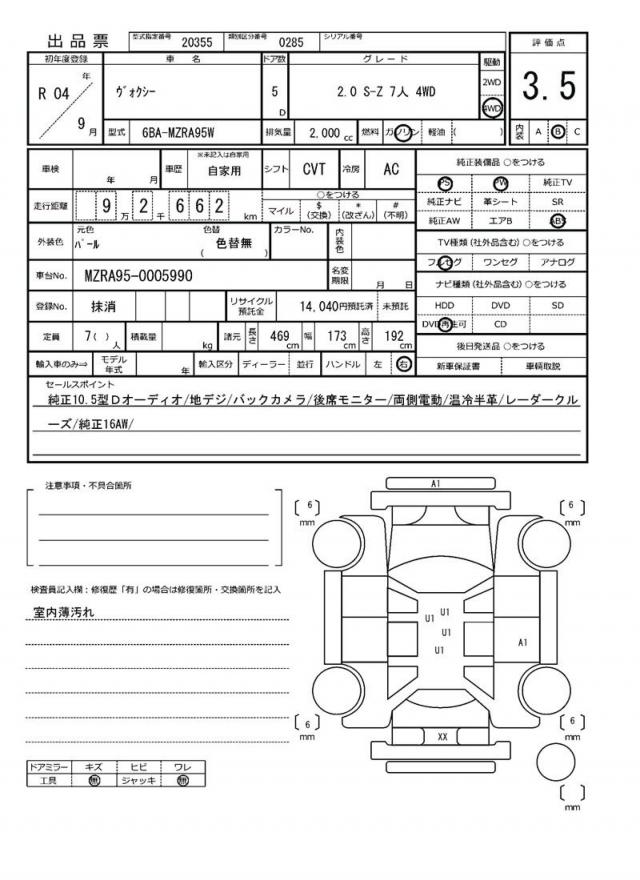 出品票 型式指定番号 20355 類別区分番号 0285 シリアル番号
初年度登録 車名 ドア数 グレード 駆動 評価点
R 04 年 9 月 ヴォクシー 5 D 2.0 S-Z 7人 4WD 2WD 4WD 3.5
型式 6BA-MZRA95W 排気量 2,000 cc 燃料 ガソリン 軽油 ( ) 内装 A B C
車検 年 月 車歴 ※未記入は自家用 自家用 シフト CVT 冷房 AC
走行距離 9 万 2 千 6 6 2 km ○をつける マイル $ (交換) * (改ざん) # (不明)
外装色 元色 パール 色替 ( 色替無 ) カラーNo. 内装色
車台No. MZRA95-0005990 名変期限 月 日
登録No. 抹消 リサイクル預託金 14,040円預託済 未預託
定員 7( ) 人 積載量 kg 諸元 長さ 469 cm 幅 173 cm 高さ 192 cm
輸入車のみ⇒ モデル年式 年 輸入区分 ディーラー 並行 ハンドル 左 右
純正装備品 ○をつける
PS PW 純正TV
純正ナビ 革シート SR
純正AW エアB ABS
TV種類(社外品含む)○をつける
フルセグ ワンセグ アナログ
ナビ種類(社外品含む)○をつける
HDD DVD SD
DVD再生可 CD
後日発送品 ○をつける
新車保証書 車輌取説
セールスポイント
純正10.5型Dオーディオ/地デジ/バックカメラ/後席モニター/両側電動/温冷半革/レーダークル
ーズ/純正16AW/
注意事項・不具合箇所
検査員記入欄：修復歴「有」の場合は修復箇所・交換箇所を記入
室内薄汚れ
ドアミラー キズ ヒビ ワレ
工具 無 ジャッキ 無
A1
( 6 ) mm
( 6 ) mm
U1
U1
U1
U1
A1
( 6 ) mm
( 6 ) mm
XX
( ) mm